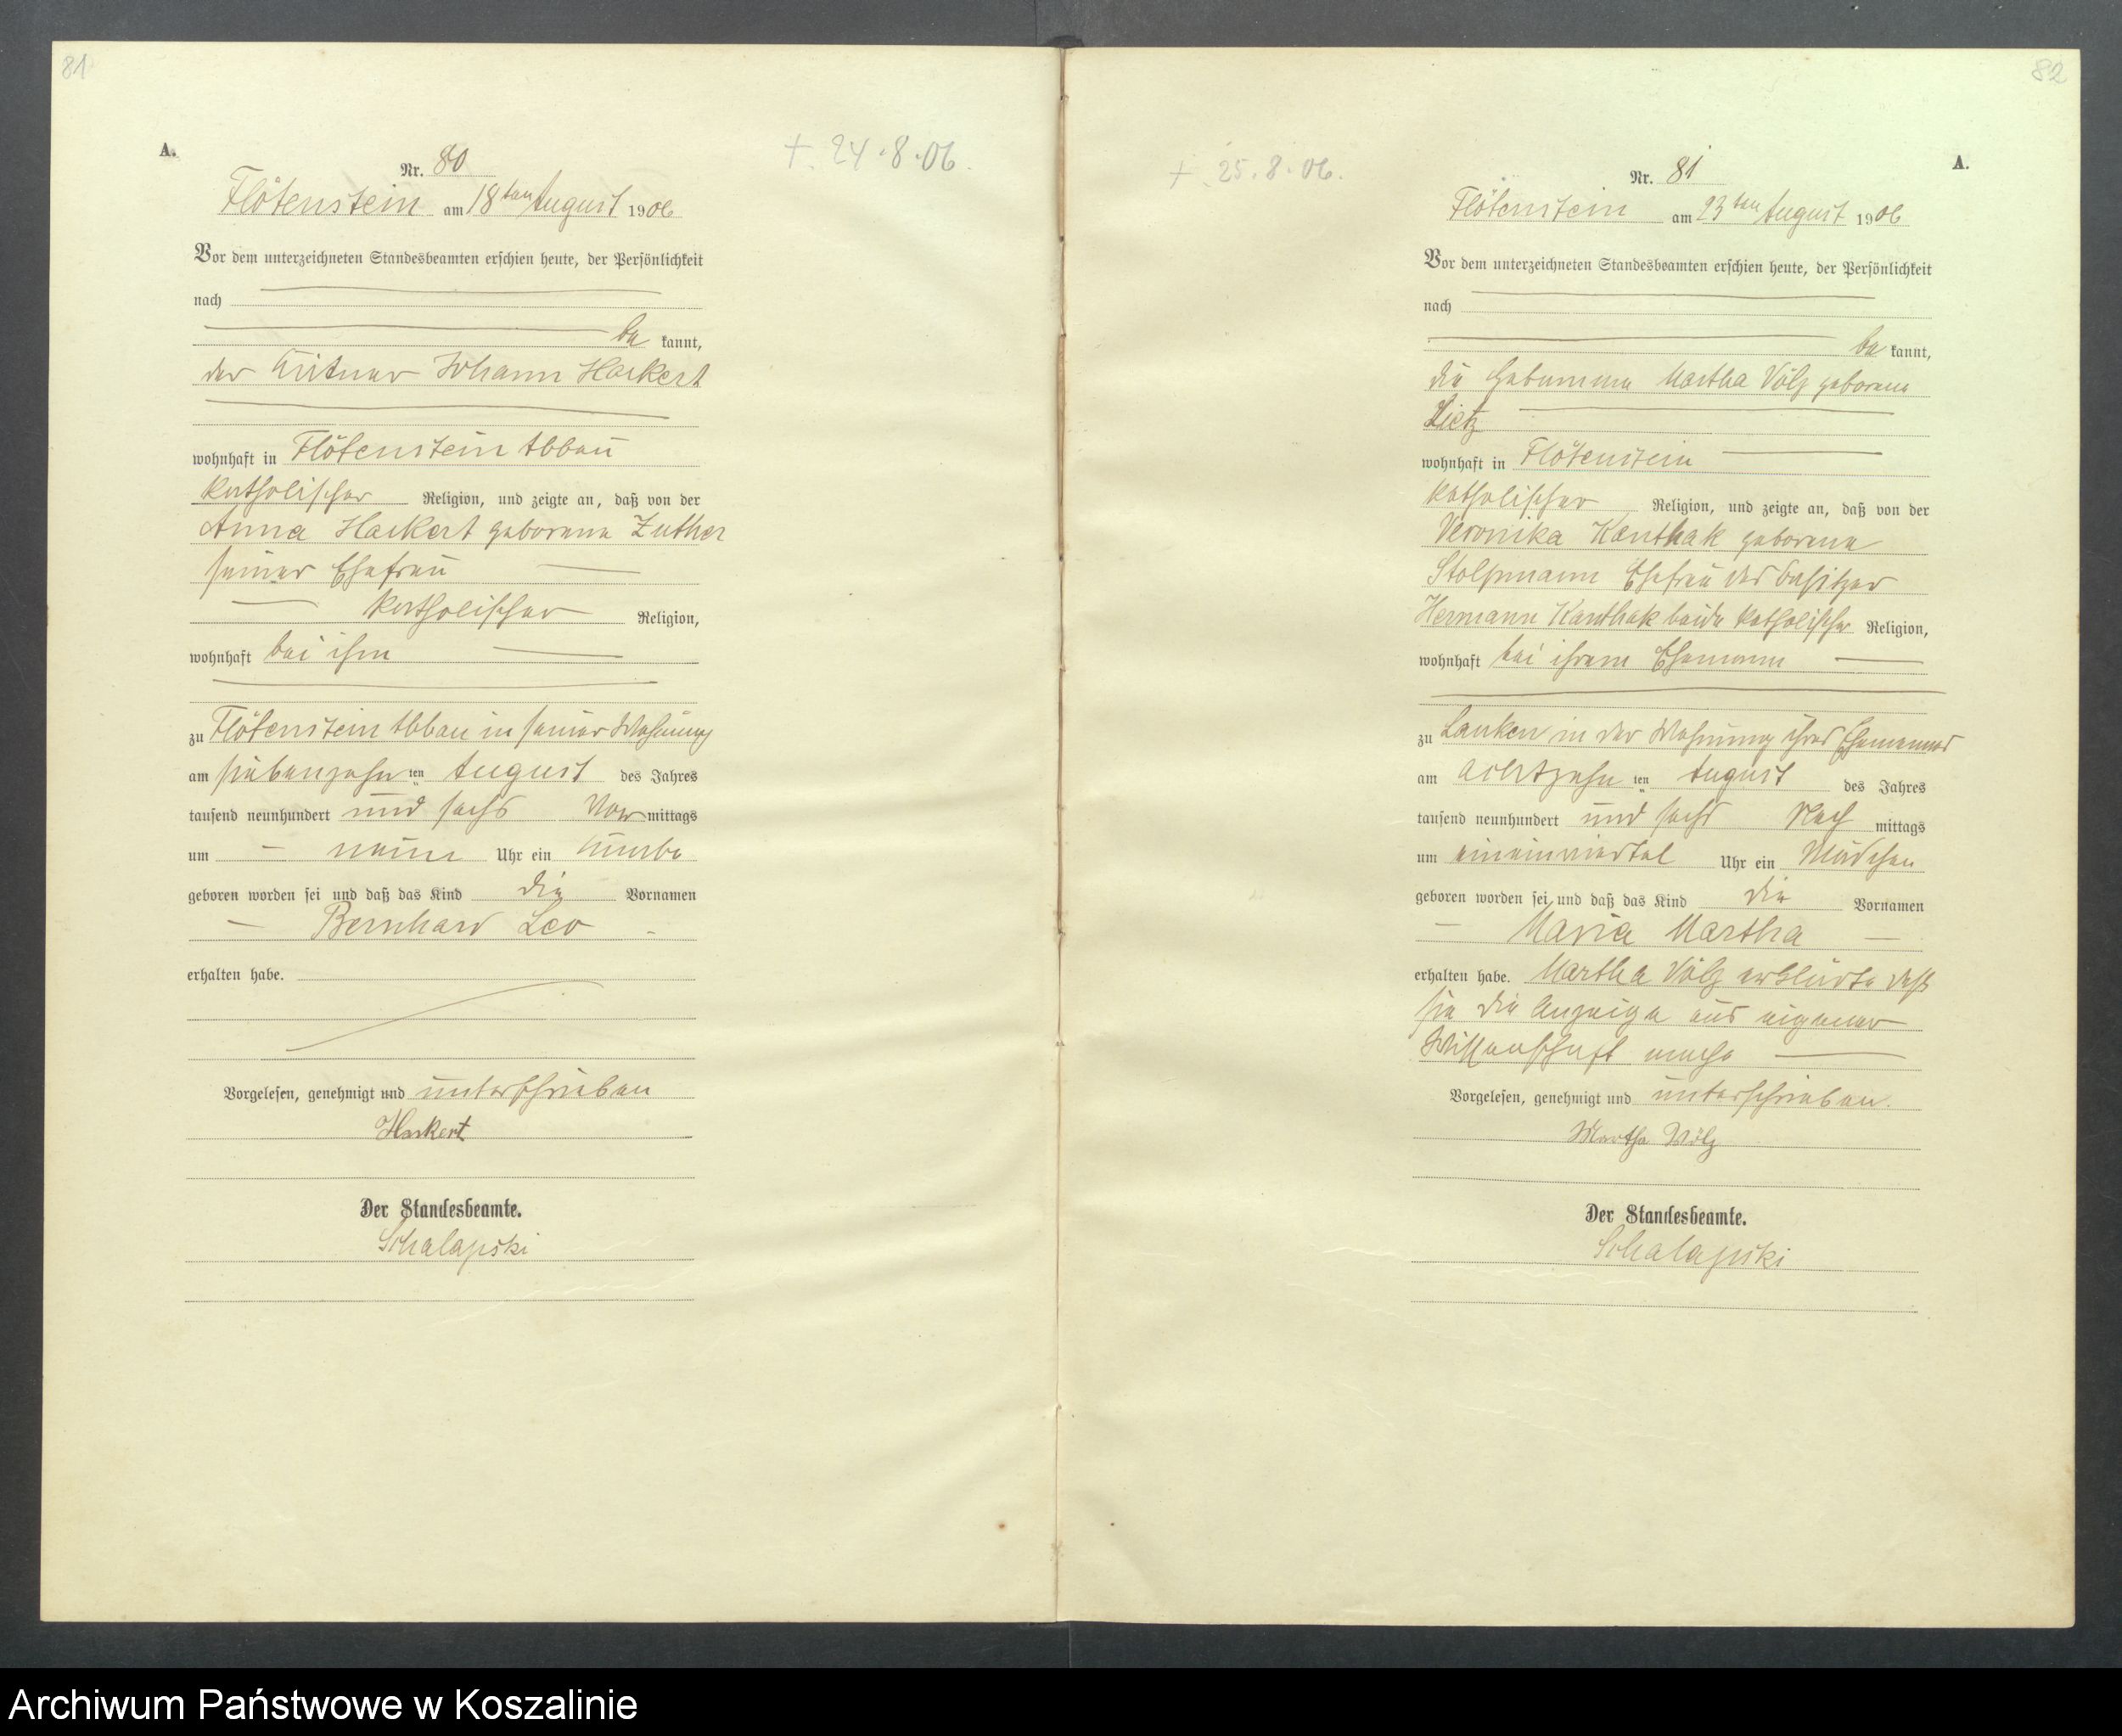 81
A.
+. 24.8.06.
Nr. 80
Flötenstein am 18ten August 1906
Vor dem unterzeichneten Standesbeamten erschien heute, der Persönlichkeit
nach
be kannt,
der Johann Hackert
wohnhaft in Flötenstein Abbau
katholischer Religion, und zeigte an, daß von der
Anna Hackert geborene Zuther
seiner Ehefrau
katholischer Religion,
wohnhaft bei ihm
zu Flötenstein Abbau in seiner Wohnung
am siebenzehnten August des Jahres
tausend neunhundert und sechs Vor mittags
um neun Uhr ein Knabe
geboren worden sei und daß das Kind die Vornamen
Bernhard Leo
erhalten habe.
Vorgelesen, genehmigt und unterschrieben
Hackert
Der Standesbeamte.
Schalapski
82
A.
+. 25.8.06.
Nr. 81
Flötenstein am 23ten August 1906
Vor dem unterzeichneten Standesbeamten erschien heute, der Persönlichkeit
nach
be kannt,
die Hebamme Martha Völz geborene
Lietz
wohnhaft in Flötenstein
katholischer Religion, und zeigte an, daß von der
Veronika Kanthak geborene
Stolpmann Ehefrau des Besitzer
Hermann Kanthak beide katholischer Religion,
wohnhaft bei ihrem Ehemann
zu Lanken in der Wohnung ihres Ehemannes
am achtzehnten August des Jahres
tausend neunhundert und sechs Nach mittags
um eineinviertel Uhr ein Mädchen
geboren worden sei und daß das Kind die Vornamen
Maria Martha
erhalten habe. Martha Völz erklärte daß
sie die Anzeige aus eigener
Wissenschaft mache
Vorgelesen, genehmigt und unterschrieben.
Martha Völz
Der Standesbeamte.
Schalapski
Archiwum Państwowe w Koszalinie